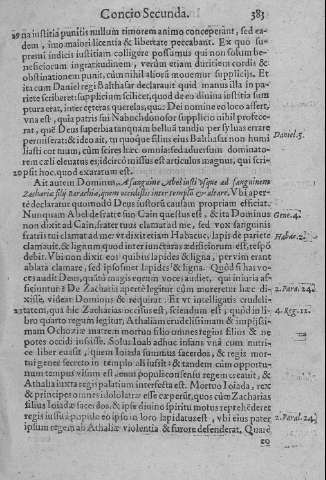 Concio Secunda. 383
na iustitia punitis nullum timorem animo conceperant, sed ea-
dem, imo maiori licentia & libertate peccabant. Ex quo su-
premi iudicis iustitiam colligere possumus qui non solum be-
neficiorum ingratitudinem, verùm etiam duritiem cordis &
obstinationem punit, cùm nihil aliorū mouemur supplicijs. Et
ita cum Daniel regi Balthasar declarauit quid manus illa in pa-
riete scriberet: supplicium scilicet, quod de eo diuina iustitia sum
ptura erat, inter cęteras querelas, quas Dei nomine eo loco assert,
vna est, quia patris sui Nabuchdonosor supplicio nihil profece-
rat, quē Deus superbia tanquam belluā tandiu per syluas errare
permiserat: & ideo ait, tu quoque filius eius Balthasar non humi
liasti cor tuum, cùm scires hæc omnia: sed aduersum dominato-
rem cæli eleuatus es, idcircò missus est articulus magnus, qui scri-
psit hoc, quod exaratum est. Daniel.5.
Ait autem Dominus, A sanguine Abel iusti vsque ad sanguinem
Zachariæ filij Barachiæ, quem occidistis inter templū & altare. Vbi aper-
tè declaratur quomodò Deus iustorū causam propriam efficiat.
Nunquam Abel defratre suo Cain questus est, & ita Dominus Gene.4.
non dixit ad Cain, frater tuus clamat ad me, sed vox sanguinis
fratris tui clamat ad me: vt dixit etiam Habacuc. lapis de pariete Habac.2.
clamauit, & lignum quod inter iuncturas ædificiorum est, respō
debit. Vbi non dixit eos quibus lapides & ligna, per vim erant
ablata clamare, sed ipsosmet lapides & ligna. Quòd si has vo-
ces audit Deus, quātò magis eorum voces audiet, qui iniuria af-
ficiuntur? De Zacharia apertè legitur cùm moreretur hæc di- 2.Para.24.
xisse, videat Dominus & requirat. Et vt intelligatis crudeli-
tatem, qua hic Zacharias occisus est, sciendum est, quòd in li- 4.Reg.11.
bro quarto regum legitur, Athaliam crudelissimam & impijssi-
mam Ochoziæ matrem mortuo filio omnes regios filios & ne
potes occidi iussisse. Solus Ioab adhuc infans vnà cum nutri-
ce liber euasit, quem Ioiada summus sacerdos, & regis mor-
tui gener secreto in templo ali iussit: & tandem cùm opportu-
num tempus visum est, cum populi consensu regem creauit, &
Athalia iuxta regis palatium interfecta est. Mortuo Ioiada, rex
& principes omnes idololatræ esse cæperūt, quos cùm Zacharias
filius Ioiadæ sacerdos, & ipse diuino spiritu motus reprehēderet
regis iussu à populo eo ipso in loco lapidatus est, vbi eius pater 2.Paral.24.
ipsum regem ab Athaliæ violentia & furore defenderat. Quare
eo